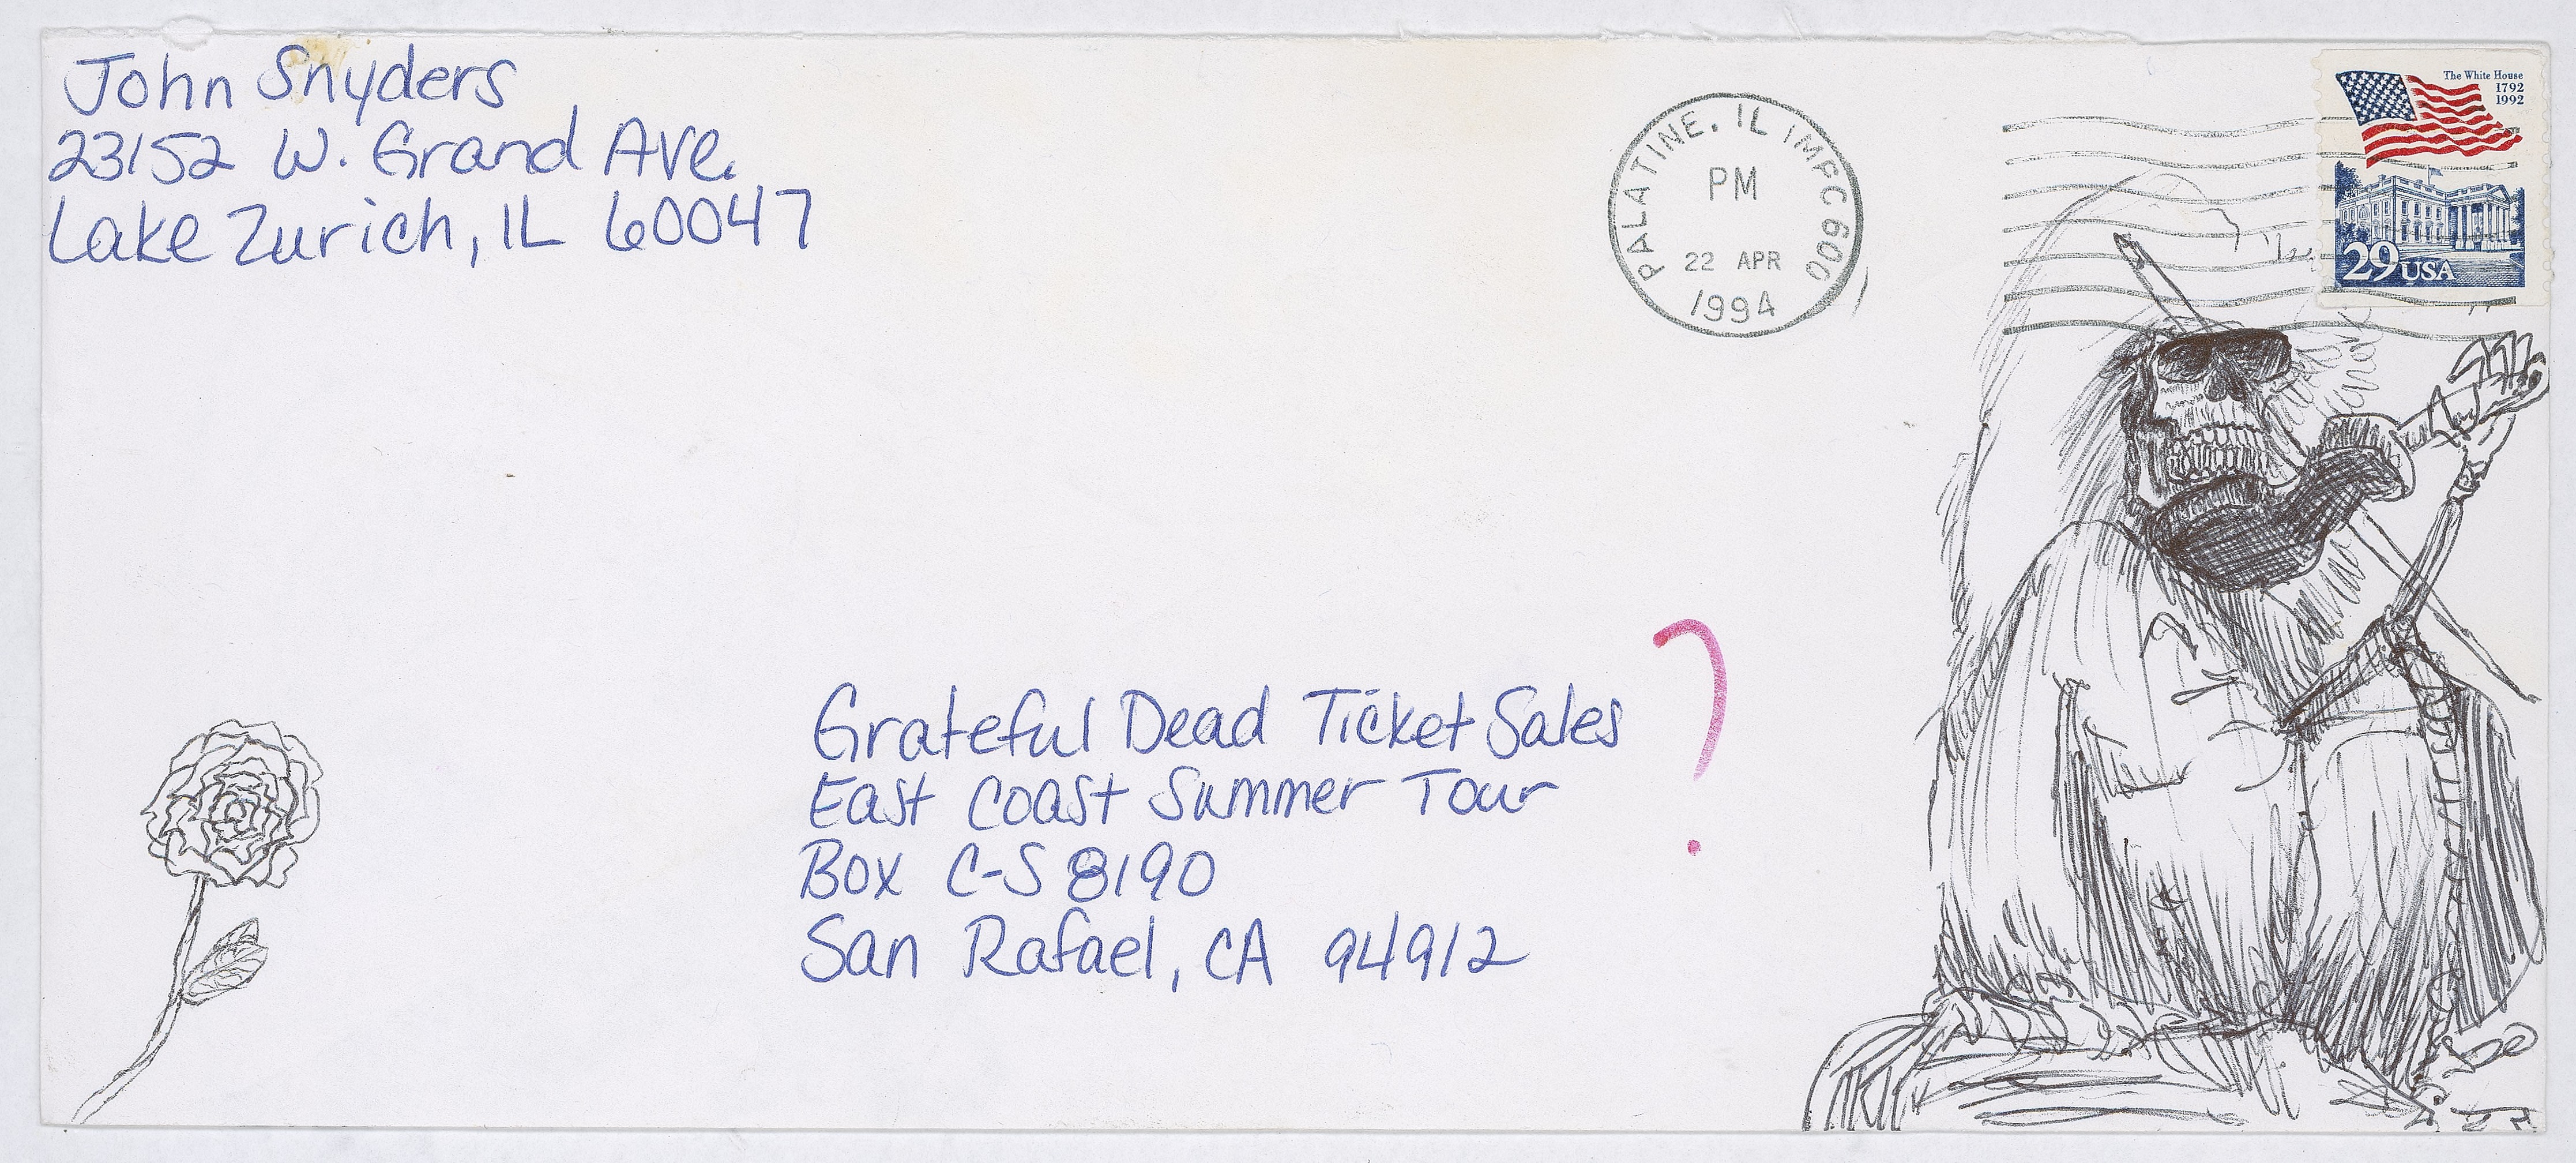 John Snyders
23152 W. Grand Ave.
Lake Zurich, IL 60047
PALATINE, IL IMPC 600
PM
22 APR
1994
The White House
1792
1992
29 USA
?
Grateful Dead Ticket Sales
East Coast Summer Tour
Box C-S 8190
San Rafael, CA 94912